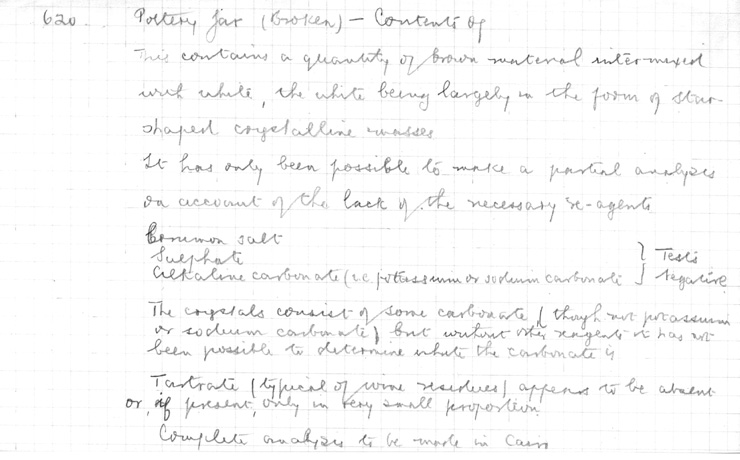 620. Pottery Jar (Broken) — Contents of
This contains a quantity of brown material intermixed
with white, the white being largely in the form of star-
shaped crystalline masses
It has only been possible to make a partial analysis
on account of the lack of the necessary re-agents
Common salt
Sulphate
Alkaline carbonate (i.e. potassium or sodium carbonate } Tests negative
The crystals consist of some carbonate (though not potassium
or sodium carbonate) but without other reagents it has not
been possible to determine what the carbonate is
Tartrate (typical of wine residues) appears to be absent
or, if present, only in very small proportion.
Complete analysis to be made in Cairo